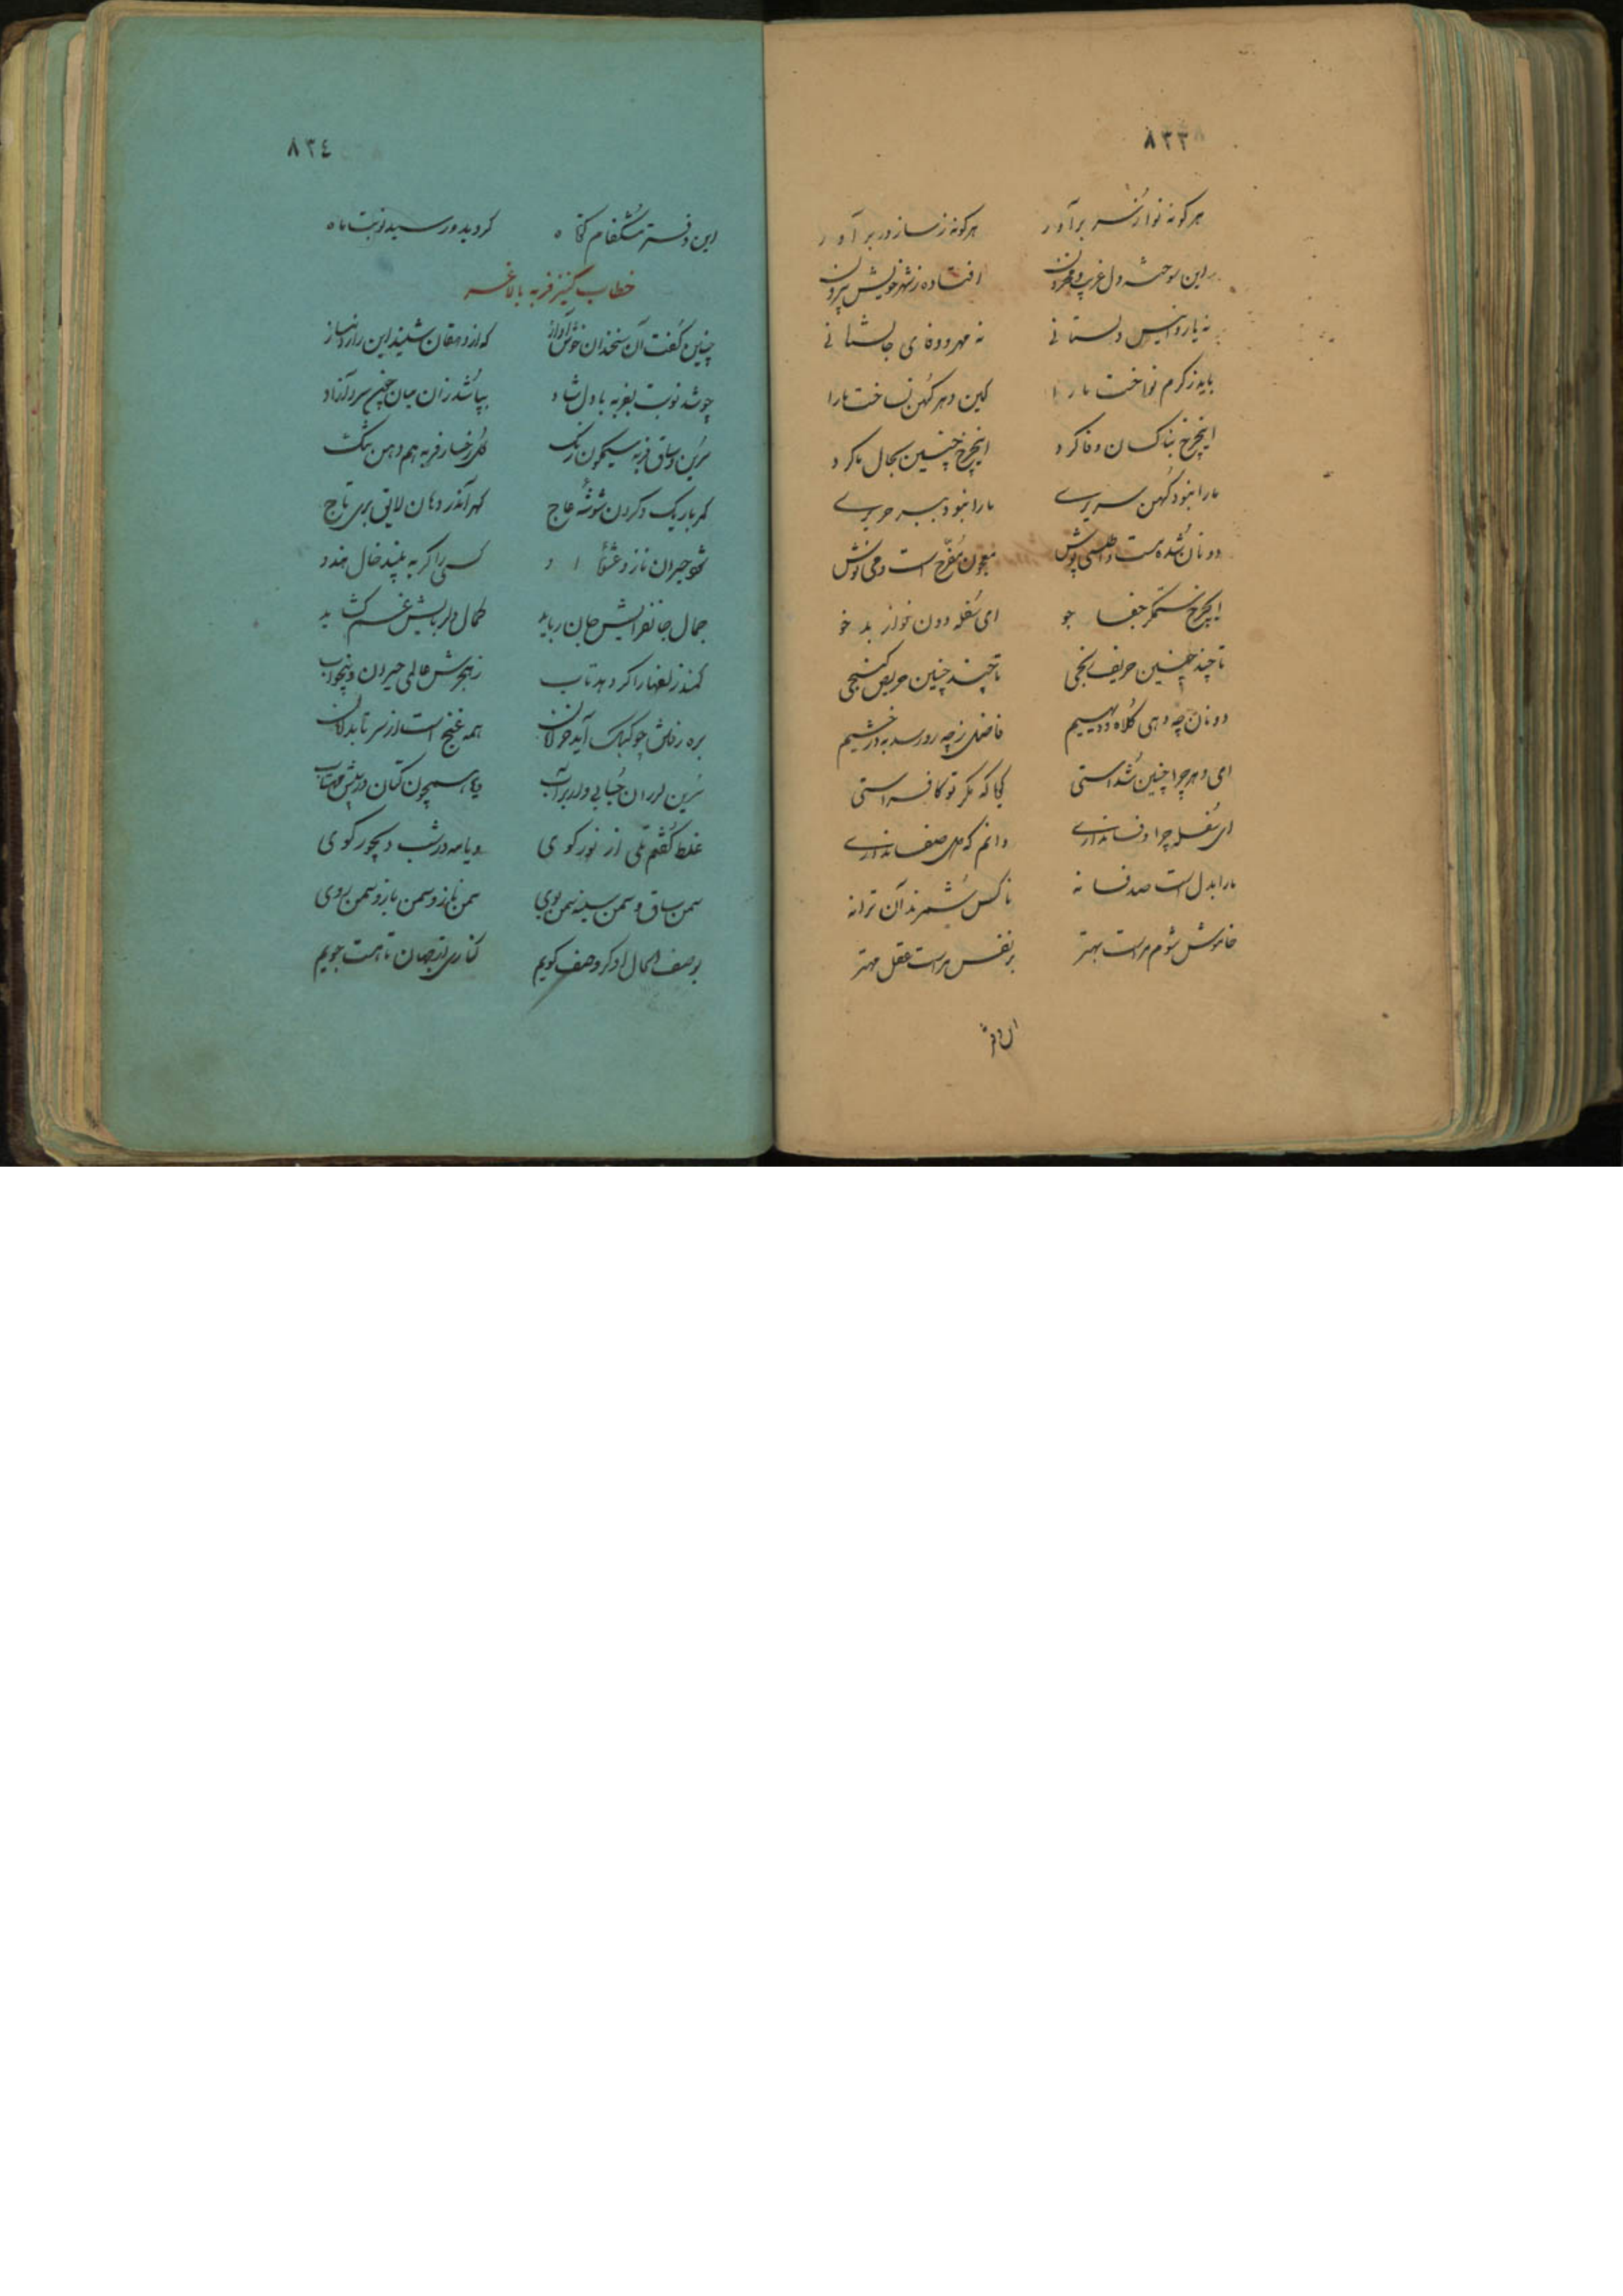 ٨٣٣
هرگونه نوا زنسر برآور هرگونه ز ساز در برآور
این سوخته دل غریب و محزون افتاده ز شهر خویش بیرون
نه یار و انیس دلستانی نه مهر و وفای جانستانی
باید ز کرم نواخت ما را کین دهر کهن نساخت ما را
اینچرخ بناکسان وفا کرد اینچرخ چنین بحال ما کرد
ما را نبود کهن سریری ما را نبود ببر حریری
دونان شده مست و اطلسی پوش معجون مفرح است و می نوش
ایچرخ ستمگر جفا جو ای سفله دون نواز بد خو
تا چند چنین حریف تا چند چنین حریص
دونان چه دهی کلاه و دیهیم فاضل ز چه رو رسد به در خیم
ای دهر چرا چنین شداستی مگر تو کافر استی
ای سفله چرا وفا نداری دانم که صفا نداری
ما را بدل است صد فسانه ناکس شمرند آن ترانه
خاموش شوم مراست بهتر بر نفس مراست عقل مهتر
این دفتر
٨٣٤
این دفتر مشکفام کوتاه گردید و رسید نوبت ماه
خطاب کنیز فربه با لاغر
چنین گفت آن سخندان خوش آواز که از دهقان شنید این راز و نیاز
چو شد نوبت بفربه با دل شاد بپا شد زان میان چون سرو آزاد
سرین و ساق فربه سیمگون رنگ گل رخسار فربه هم دهن تنگ
کمر باریک و گردن شوشهٔ عاج گهر آندر دهان لایق بری تاج
ناز و غمزه کسی را گر به بیند خال هندو
جمال جانفزایش جان رباید کمال دلربایش غم
کمند زلفها را گر دهد تاب ز هجرش عالمی حیران و بیخواب
بره رفتن چو کبک آید خرامان همه غنج است از سر تا بدامان
سرین لرزان حبابی دان بر آب و یا همچون کتان در پیش مهتاب
غلط گفتم تلی از نور گوی و یا مه در شب دیجور گوی
سمن ساق و سمن سینه سمن بوی سمن ناز و سمن بازو سمن روی
بوصف حال او گر وصف گویم کناری از جهان تا هست جویم